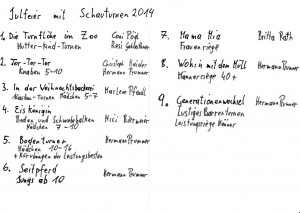 Julfeier mit Schauturnen 2014
1. Die Turnflöhe im Zoo
Mutter-Kind-Turnen
2. Tor-Tor-Tor Christoph Haider
Knaben 5-10 Hermann Prummer
3. In der Weihnachtsbäckerei Marlene Pfandl
Mädchen 5-7
4. Eiskönigin
Boden und Schwebebalken
Mädchen 7-10
5. Bodenturnen Hermann Prummer
Mädchen 10-16
+ Kürübungen der Leistungsbesten
6. Seitpferd Hermann Prummer
Jungs ab 10
7. Mama Mia Britta Rath
Frauenriege
8. Wohin mit dem Müll Hermann Prummer
Männerriege 40+
9. Generationenwechsel Hermann Prummer
Lustiges Barrenturnen
Leistungsriege Männer